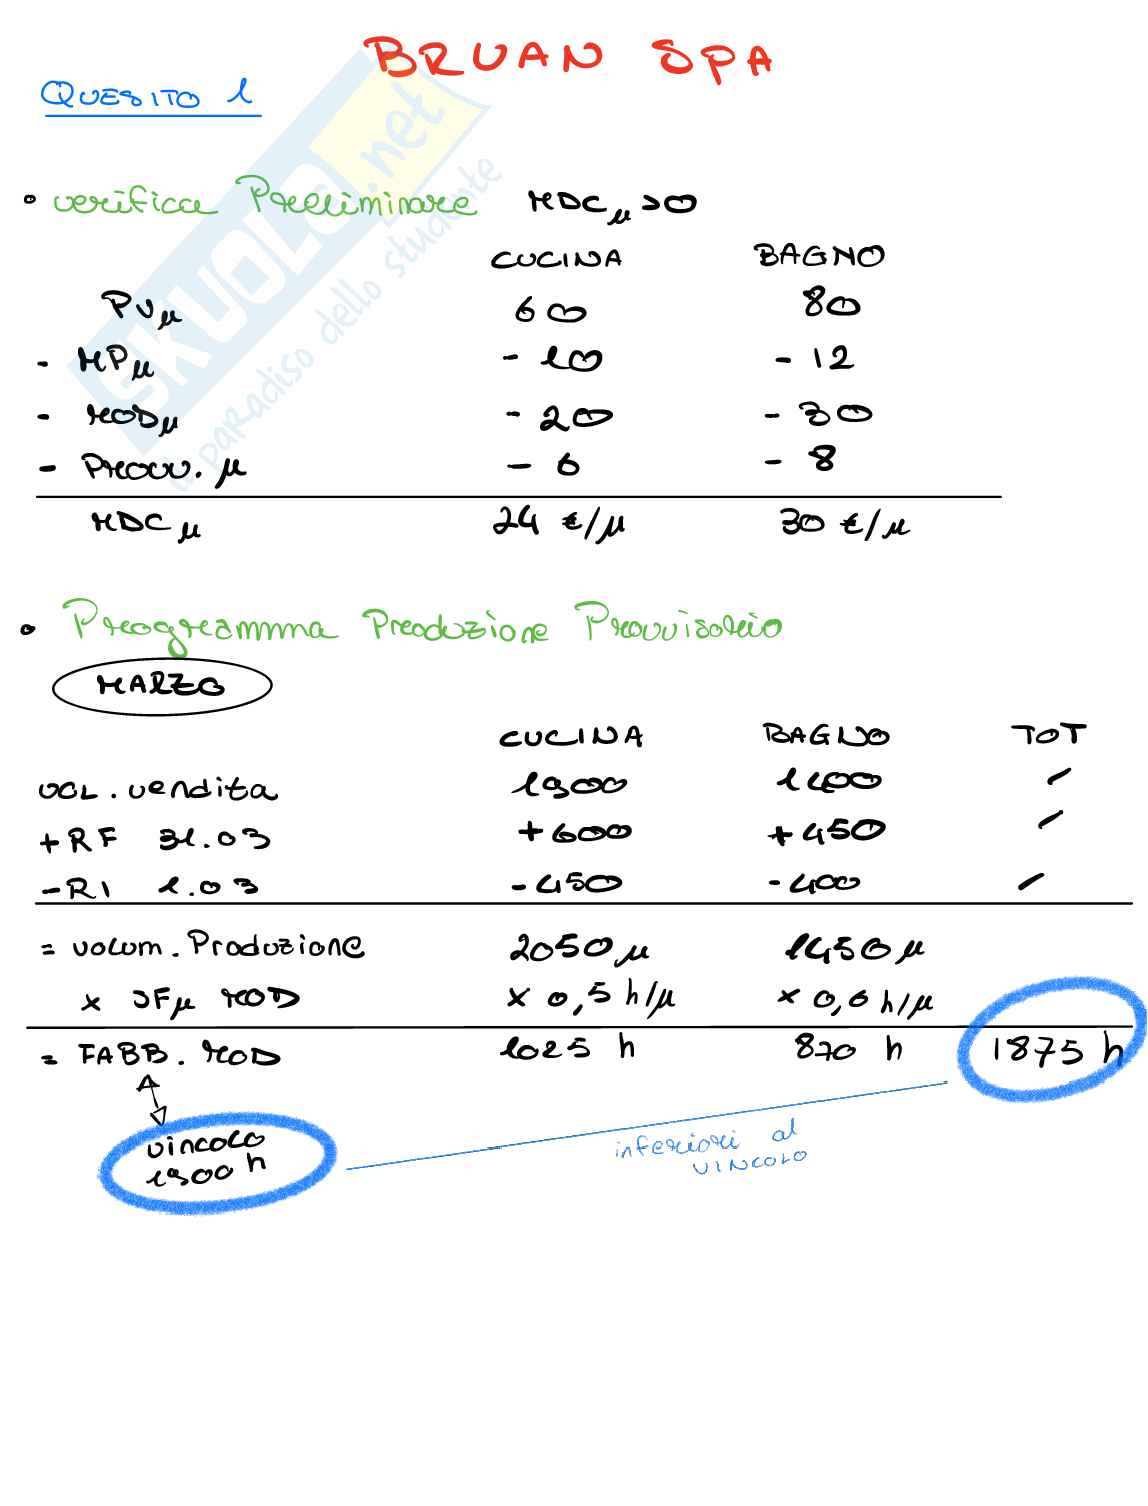 BRUAN SPA
QUESITO 1
• verifica Preliminare MDCμ >0
CUCINA BAGNO
PVμ 60 80
- MPμ - 10 - 12
- MODμ - 20 - 30
- Provv. μ - 6 - 8
MDCμ 24 €/μ 30 €/μ
• Programma Produzione Provvisorio
MARZO
CUCINA BAGNO TOT
VOL. vendita 1900 1400 /
+ RF 31.03 + 600 + 450 /
- RI 1.03 - 450 - 400 /
= volum. Produzione 2050 μ 1450 μ
x SFμ MOD x 0,5 h/μ x 0,6 h/μ
= FABB. MOD 1025 h 870 h 1875 h
vincolo
1900 h
inferiori al
VINCOLO
SKUOLA.net
il paradiso dello studente